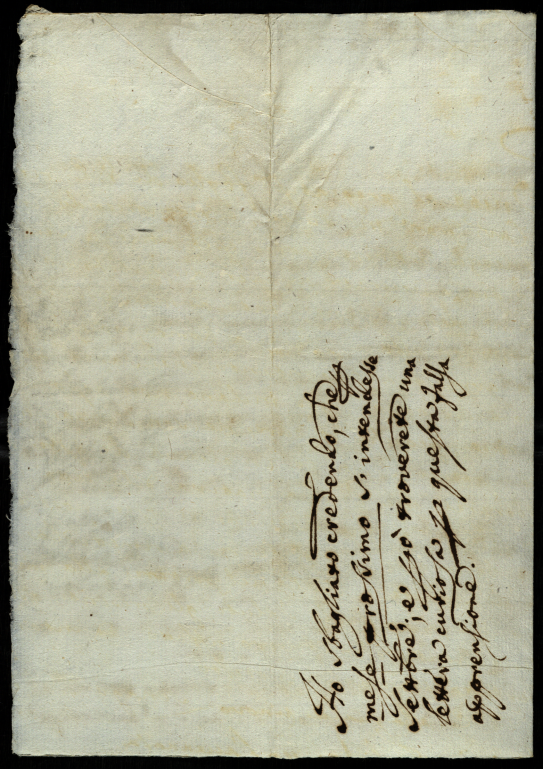 Ho sbagliato credendo, che p
mese prossimo s'intendesse
Settore, e però troverete una
lettera curiosa p questa falsa
apprensione.